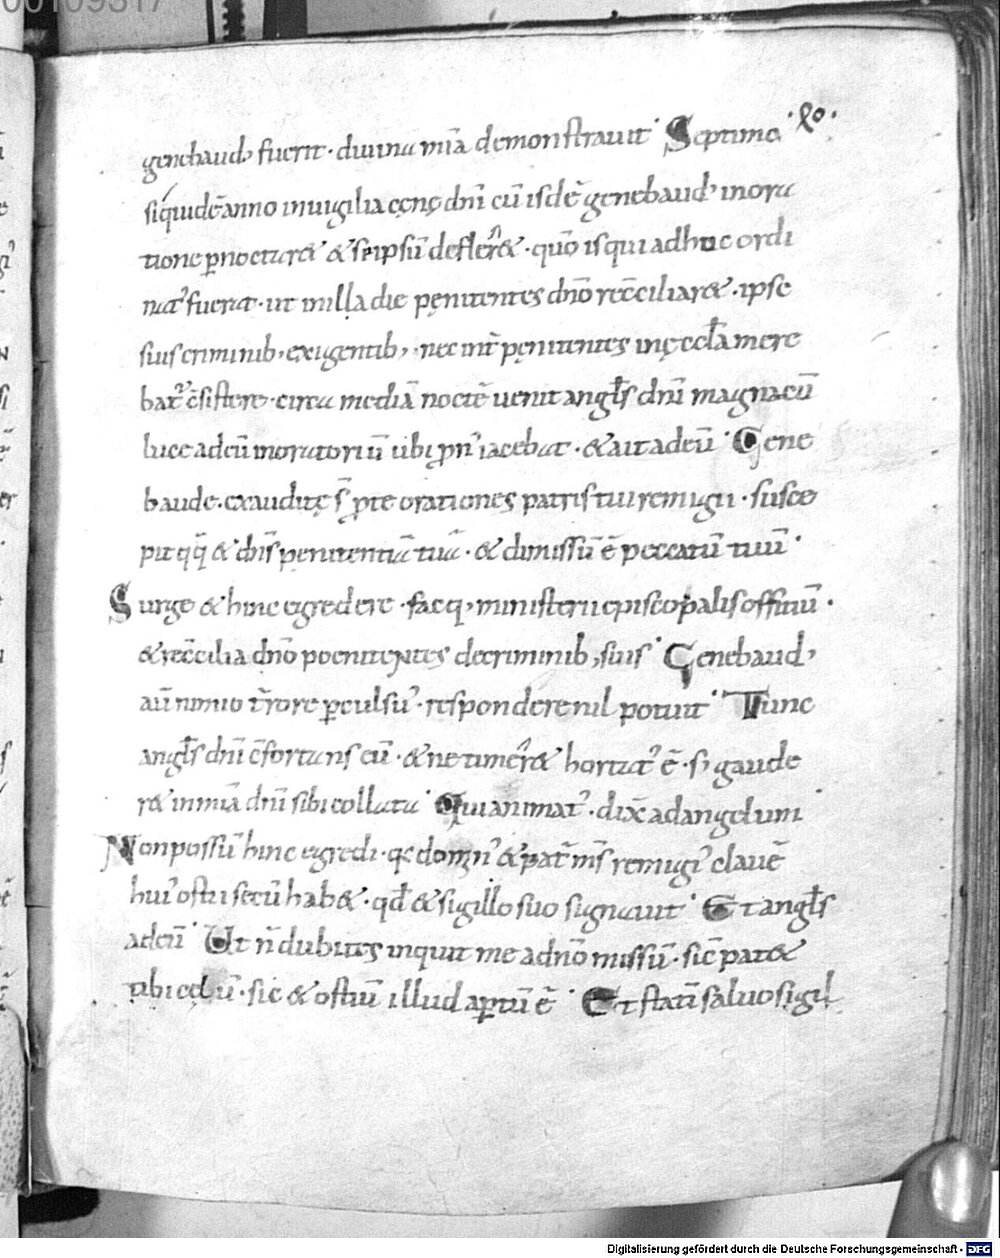 00109317
·lo·
genebaud᾽ fuerit · diuina mi͞a demonstrauit · Septimo
siquidē anno in uigilia cęnę dn̄i cū isdē genebaud᾽ in ora
tione ꝑnoctar& & se ipsū defler& · quō is qui ad hoc ordi
nat᾽ fuerat · ut in illa die pęnitentes dn̄o rec̄ciliar& · ipse
suis criminib; exigentib; · nec int̄ pęnitentes in ęccl̄a mere
bat᾽ c̄sistere · circa mediā noctē uenit angl̄s dn̄i magna cū
luce ad eū in oratoriū ubi ꝓn᾽ iacebat · & ait ad eū · Gene
baude · exauditę s̄ ꝓ te orationes patris tui remigii · susce
pit qq̄ & dn̄s penitentiā tuā · & dimissū ē peccatū tuū ·
Surge & hinc egredere · facq; ministerii episcopalis officiū ·
& rec̄cilia dn̄o poenitentes de criminib; suis · Genebaud᾽
aū nimio t̄rore ꝑculsu᾽ · respondere nil potuit · Tunc
angl̄s dn̄i c̄fortans eū · & ne timer& hortat᾽ ē · s; gaude
r& in mi͞a dn̄i sibi collata · Qui animat᾽ · dix̄ ad angelum
Non possū hinc egredi · qa domn᾽ & pat̄ m̄s remigi᾽ clauē
hui᾽ ostii secū hab& · qd̄ & sigillo suo signauit · Et angl̄s
ad eū · Ut n̄ dubites inquit me a dn̄o missū · sic̄ pat&
tibi cęlū · sic & ostiū illud aꝑtū ē · Et statī saluo sigil
Digitalisierung gefördert durch die Deutsche Forschungsgemeinschaft - DFG